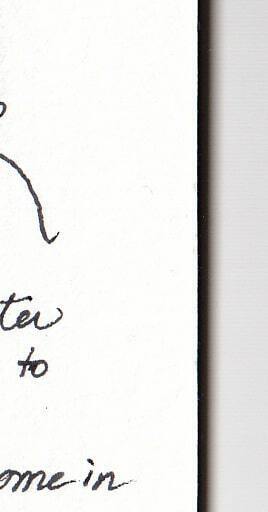 ter
to
ome in